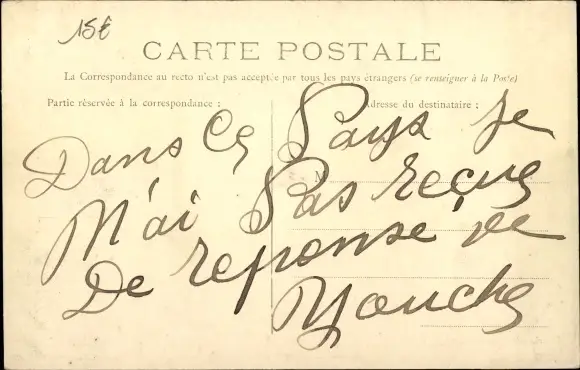 15€
CARTE POSTALE
La Correspondance au recto n'est pas acceptée par tous les pays étrangers (se renseigner à la Poste)
Partie réservée à la correspondance :
Adresse du destinataire :
Dans Ce Pays Je
M
M'ai Pas reçue
De reponse de